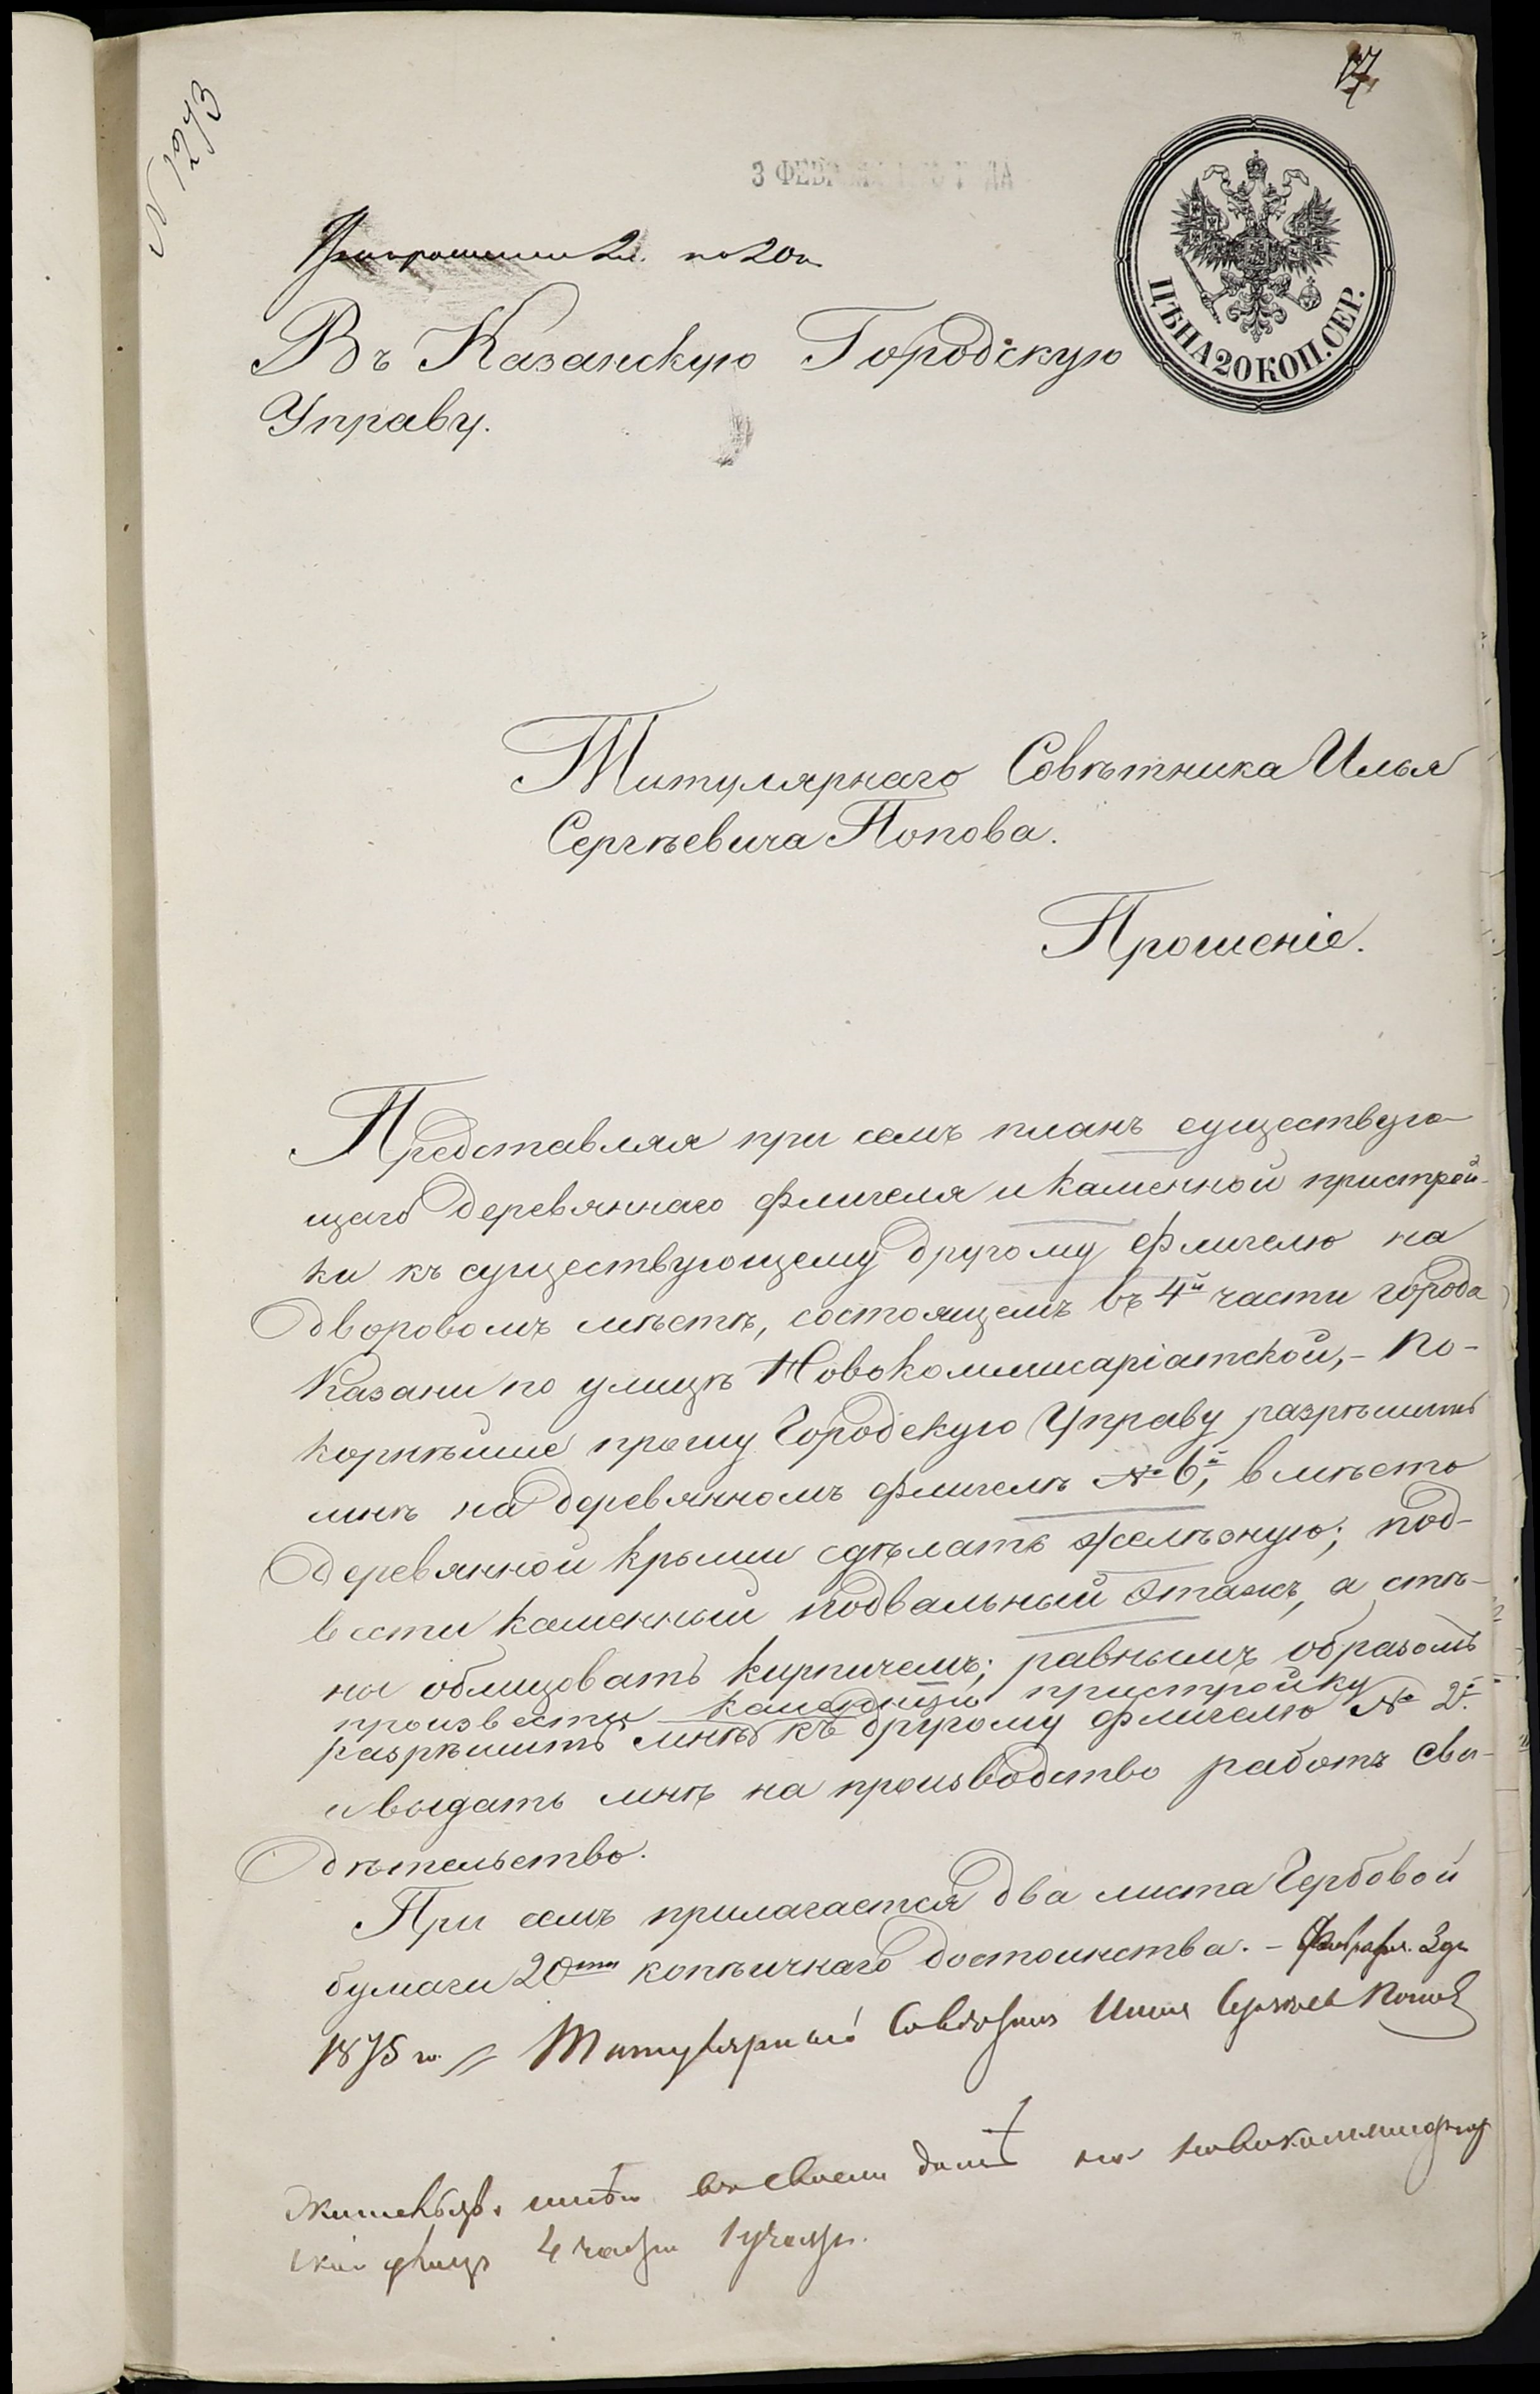 17
N 1273
3 ФЕВР
При прошении 2 л. по 20 к
ЦѢНА 20 КОП. СЕР.
Въ Казанскую Городскую
Управу.
Титулярнаго Совѣтника Илья
Сергѣевича Попова.
Прошеніе.
Представляя при семъ планъ существую-
щаго деревяннаго флигеля и каменной пристрой-
ки къ существующему другому флигелю на
дворовомъ мѣстѣ, состоящемъ въ 4й части города
Казани по улицѣ Новокоммисаріатской, - по-
корнѣйше прошу Городскую Управу разрѣшить
мнѣ на деревянномъ флигелѣ № 6й, вмѣсто
деревянной крыши сдѣлать желѣзную; под-
вести каменный подвальный этажъ, а стѣ-
ны облицовать кирпичемъ; равнымъ образомъ
произвести каменную пристройку
разрѣшить мнѣ къ другому флигелю № 2й.
и выдать мнѣ на производство работъ сви-
дѣтельство.
При семъ прилагается два листа Гербовой
бумаги 20ти копѣичнаго достоинства. - Февраля 3 дн
1875 го Титулярный Совѣтник Илья Сергѣев Попов
Жительство имѣю в своем доме на Новокоммисариат
ской улице 4 части 1 участк.